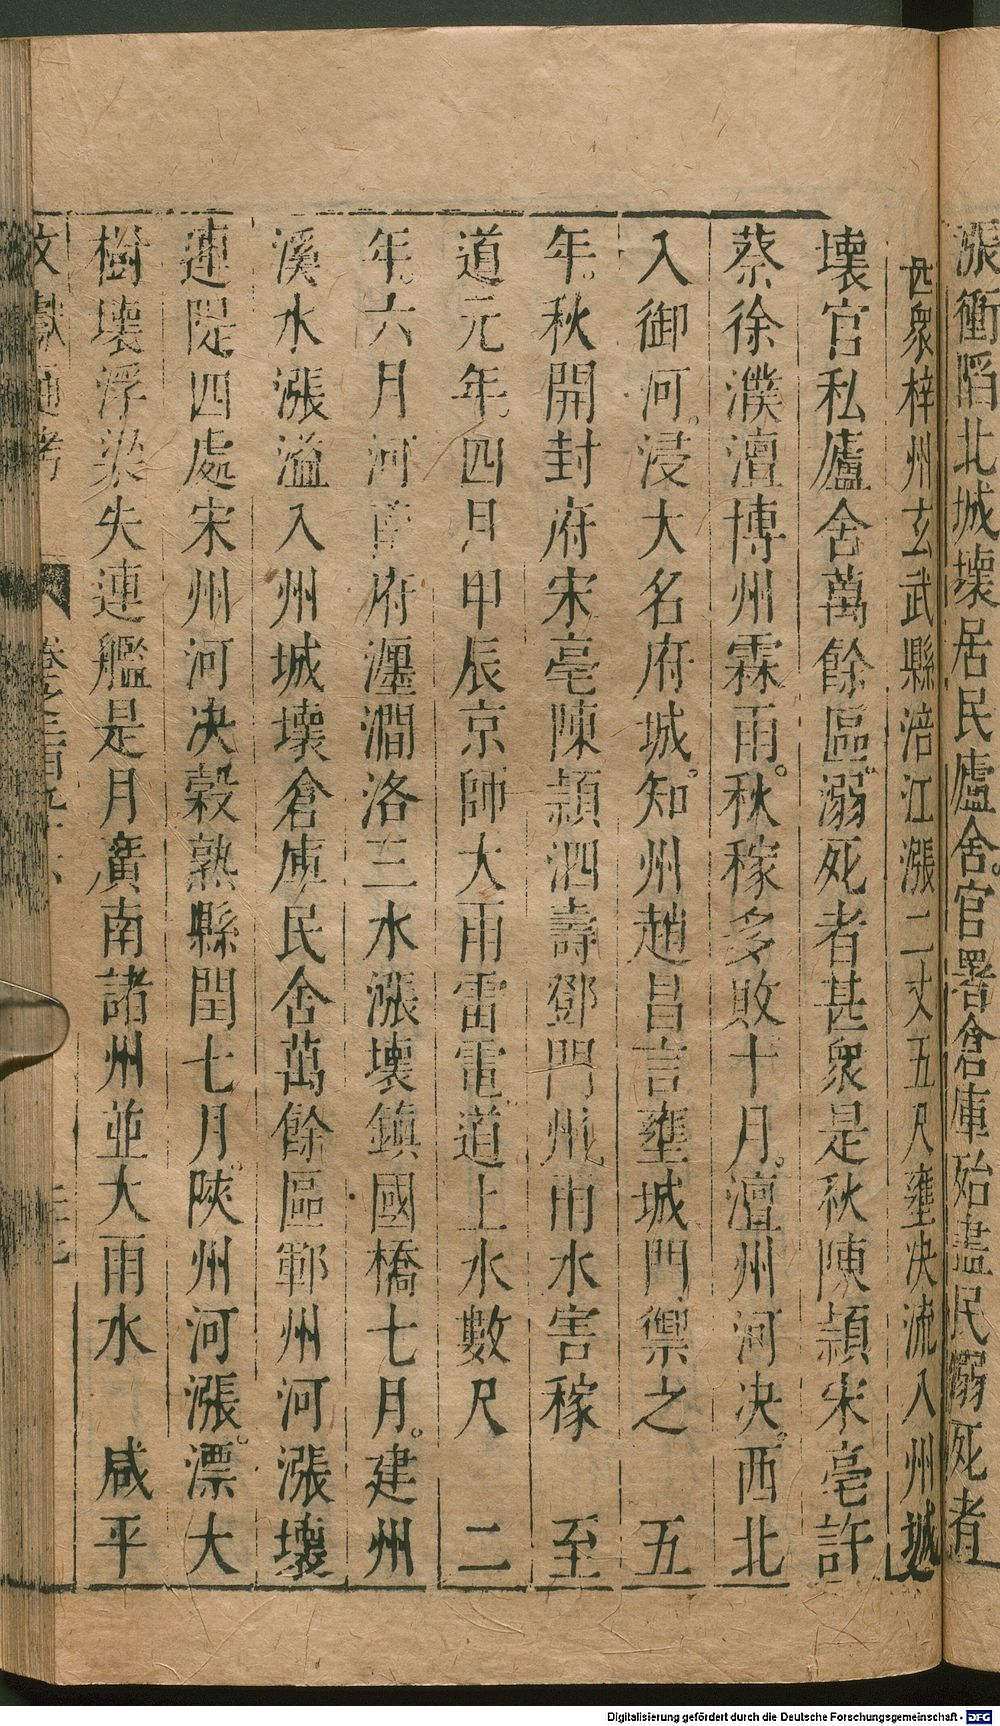 漲衝陷北城壞居民廬舍官署倉庫殆盡民溺死者
甚衆梓州玄武縣涪江漲二丈五尺壅决流入州城
壞官私廬舍萬餘區溺死者甚衆是秋陳潁宋亳許
蔡徐濮澶博州霖雨秋稼多敗十月澶州河决西北
入御河浸大名府城知州趙昌言壅城門禦之　五
年秋開封府宋亳陳潁泗壽鄧門州雨水害稼　至
道元年四月甲辰京師大雨雷電道上水數尺　二
年六月河南府瀍澗洛三水漲壞鎮國橋七月建州
溪水漲溢入州城壞倉庫民舍萬餘區鄆州河漲壞
連隄四處宋州河决穀熟縣閏七月陝州河漲漂大
樹壞浮梁失連艦是月廣南諸州並大雨水　咸平
文獻通考　卷之三百九十六
Digitalisierung gefördert durch die Deutsche Forschungsgemeinschaft - DFG